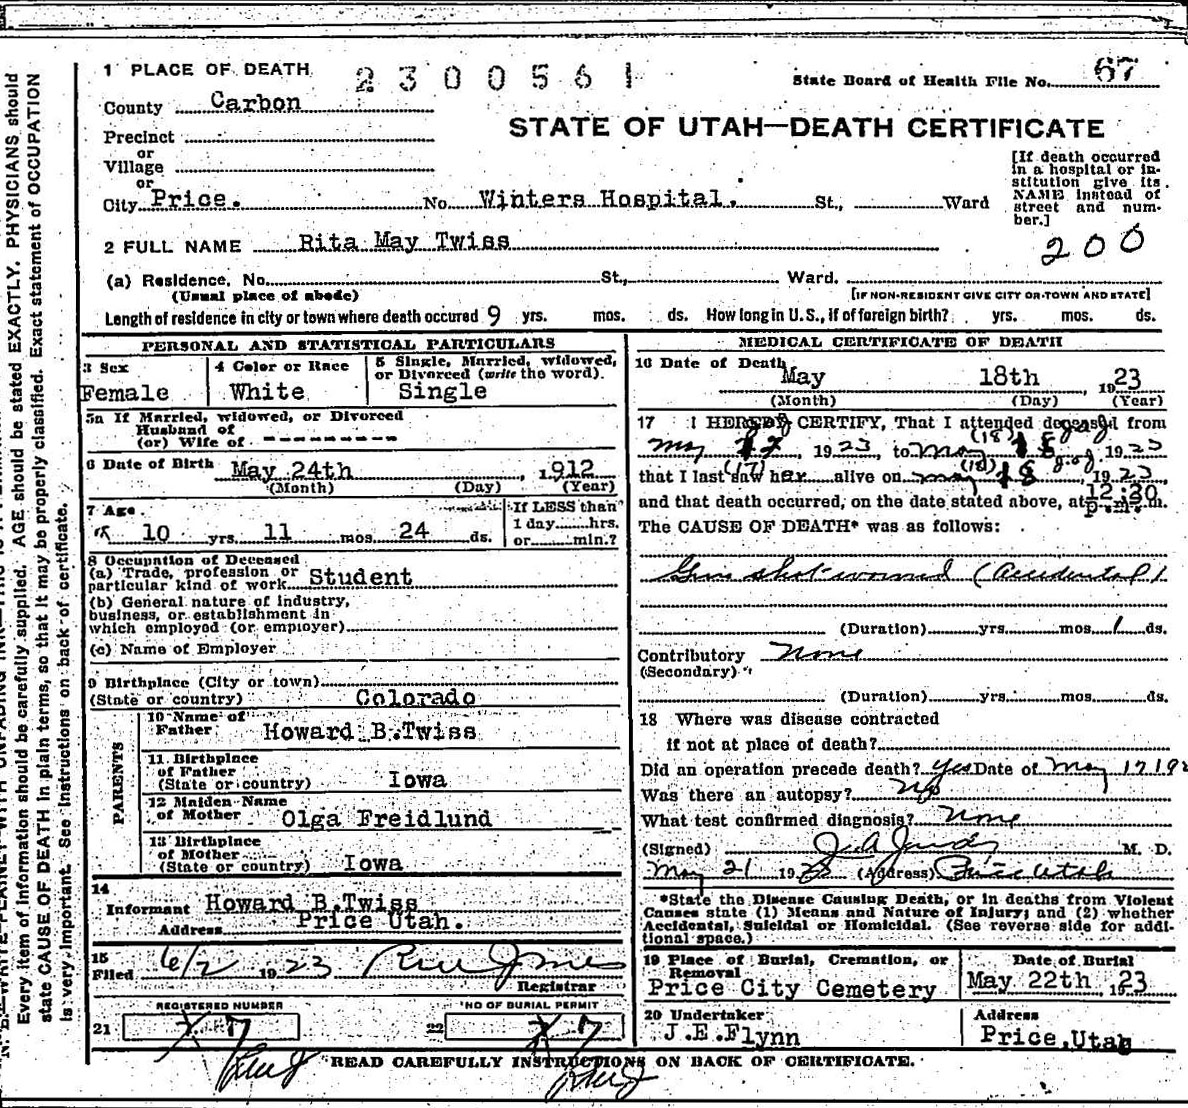 1 PLACE OF DEATH
2300561
State Board of Health File No. 67
County Carbon
STATE OF UTAH—DEATH CERTIFICATE
Precinct
or
Village
or
City Price. No. Winters Hospital. St., Ward
[If death occurred in a hospital or in-
stitution give its
NAME instead of
street and num-
ber.]
200
2 FULL NAME Rita May Twiss
(a) Residence, No. St., Ward.
(Usual place of abode) [IF NON-RESIDENT GIVE CITY OR TOWN AND STATE]
Length of residence in city or town where death occured 9 yrs. mos. ds. How long in U.S., if of foreign birth? yrs. mos. ds.
PERSONAL AND STATISTICAL PARTICULARS
3 Sex
Female
4 Color or Race
White
5 Single, Married, widowed,
or Divorced (write the word).
Single
5a If Married, widowed, or Divorced
Husband of
(or) Wife of ----------
6 Date of Birth May 24th, 1912
(Month) (Day) (Year)
7 Age
10 yrs. 11 mos. 24 ds.
If LESS than
1 day hrs.
or min.?
8 Occupation of Deceased
(a) Trade, profession or
particular kind of work Student
(b) General nature of industry,
business, or establishment in
which employed (or employer)
(c) Name of Employer
9 Birthplace (City or town)
(State or country) Colorado
PARENTS
10 Name of
Father Howard B.Twiss
11 Birthplace
of Father
(State or country) Iowa
12 Maiden Name
of Mother Olga Freidlund
13 Birthplace
of Mother
(State or country) Iowa
14
Informant Howard B.Twiss
Address Price Utah.
15
Filed 6/2 1923
Registrar
REGISTERED NUMBER
21 7
NO OF BURIAL PERMIT
22 7
MEDICAL CERTIFICATE OF DEATH
16 Date of Death
May 18th 1923
(Month) (Day) (Year)
17 I HEREBY CERTIFY, That I attended deceased from
May (17), 1923, to May (18), 1923
that I last saw her alive on May (18), 1923,
and that death occurred, on the date stated above, at 12:30
p.m.m.
The CAUSE OF DEATH* was as follows:
Gun shot wound (Accidental)
(Duration) yrs. mos. 1 ds.
Contributory None
(Secondary)
(Duration) yrs. mos. ds.
18 Where was disease contracted
if not at place of death?
Did an operation precede death? Yes Date of May 17 192
Was there an autopsy? No
What test confirmed diagnosis? None
(Signed) M. D.
May 21 19 (Address) Price Utah
*State the Disease Causing Death, or in deaths from Violent
Causes state (1) Means and Nature of Injury; and (2) whether
Accidental, Suicidal or Homicidal. (See reverse side for addi-
tional space.)
19 Place of Burial, Cremation, or
Removal
Price City Cemetery
Date of Burial
May 22th 1923
20 Undertaker
J.E.Flynn
Address
Price,Utah
*READ CAREFULLY INSTRUCTIONS ON BACK OF CERTIFICATE.
Every item of information should be carefully supplied. AGE should be stated EXACTLY. PHYSICIANS should
state CAUSE OF DEATH in plain terms, so that it may be properly classified. Exact statement of OCCUPATION
is very important. See Instructions on back of certificate.